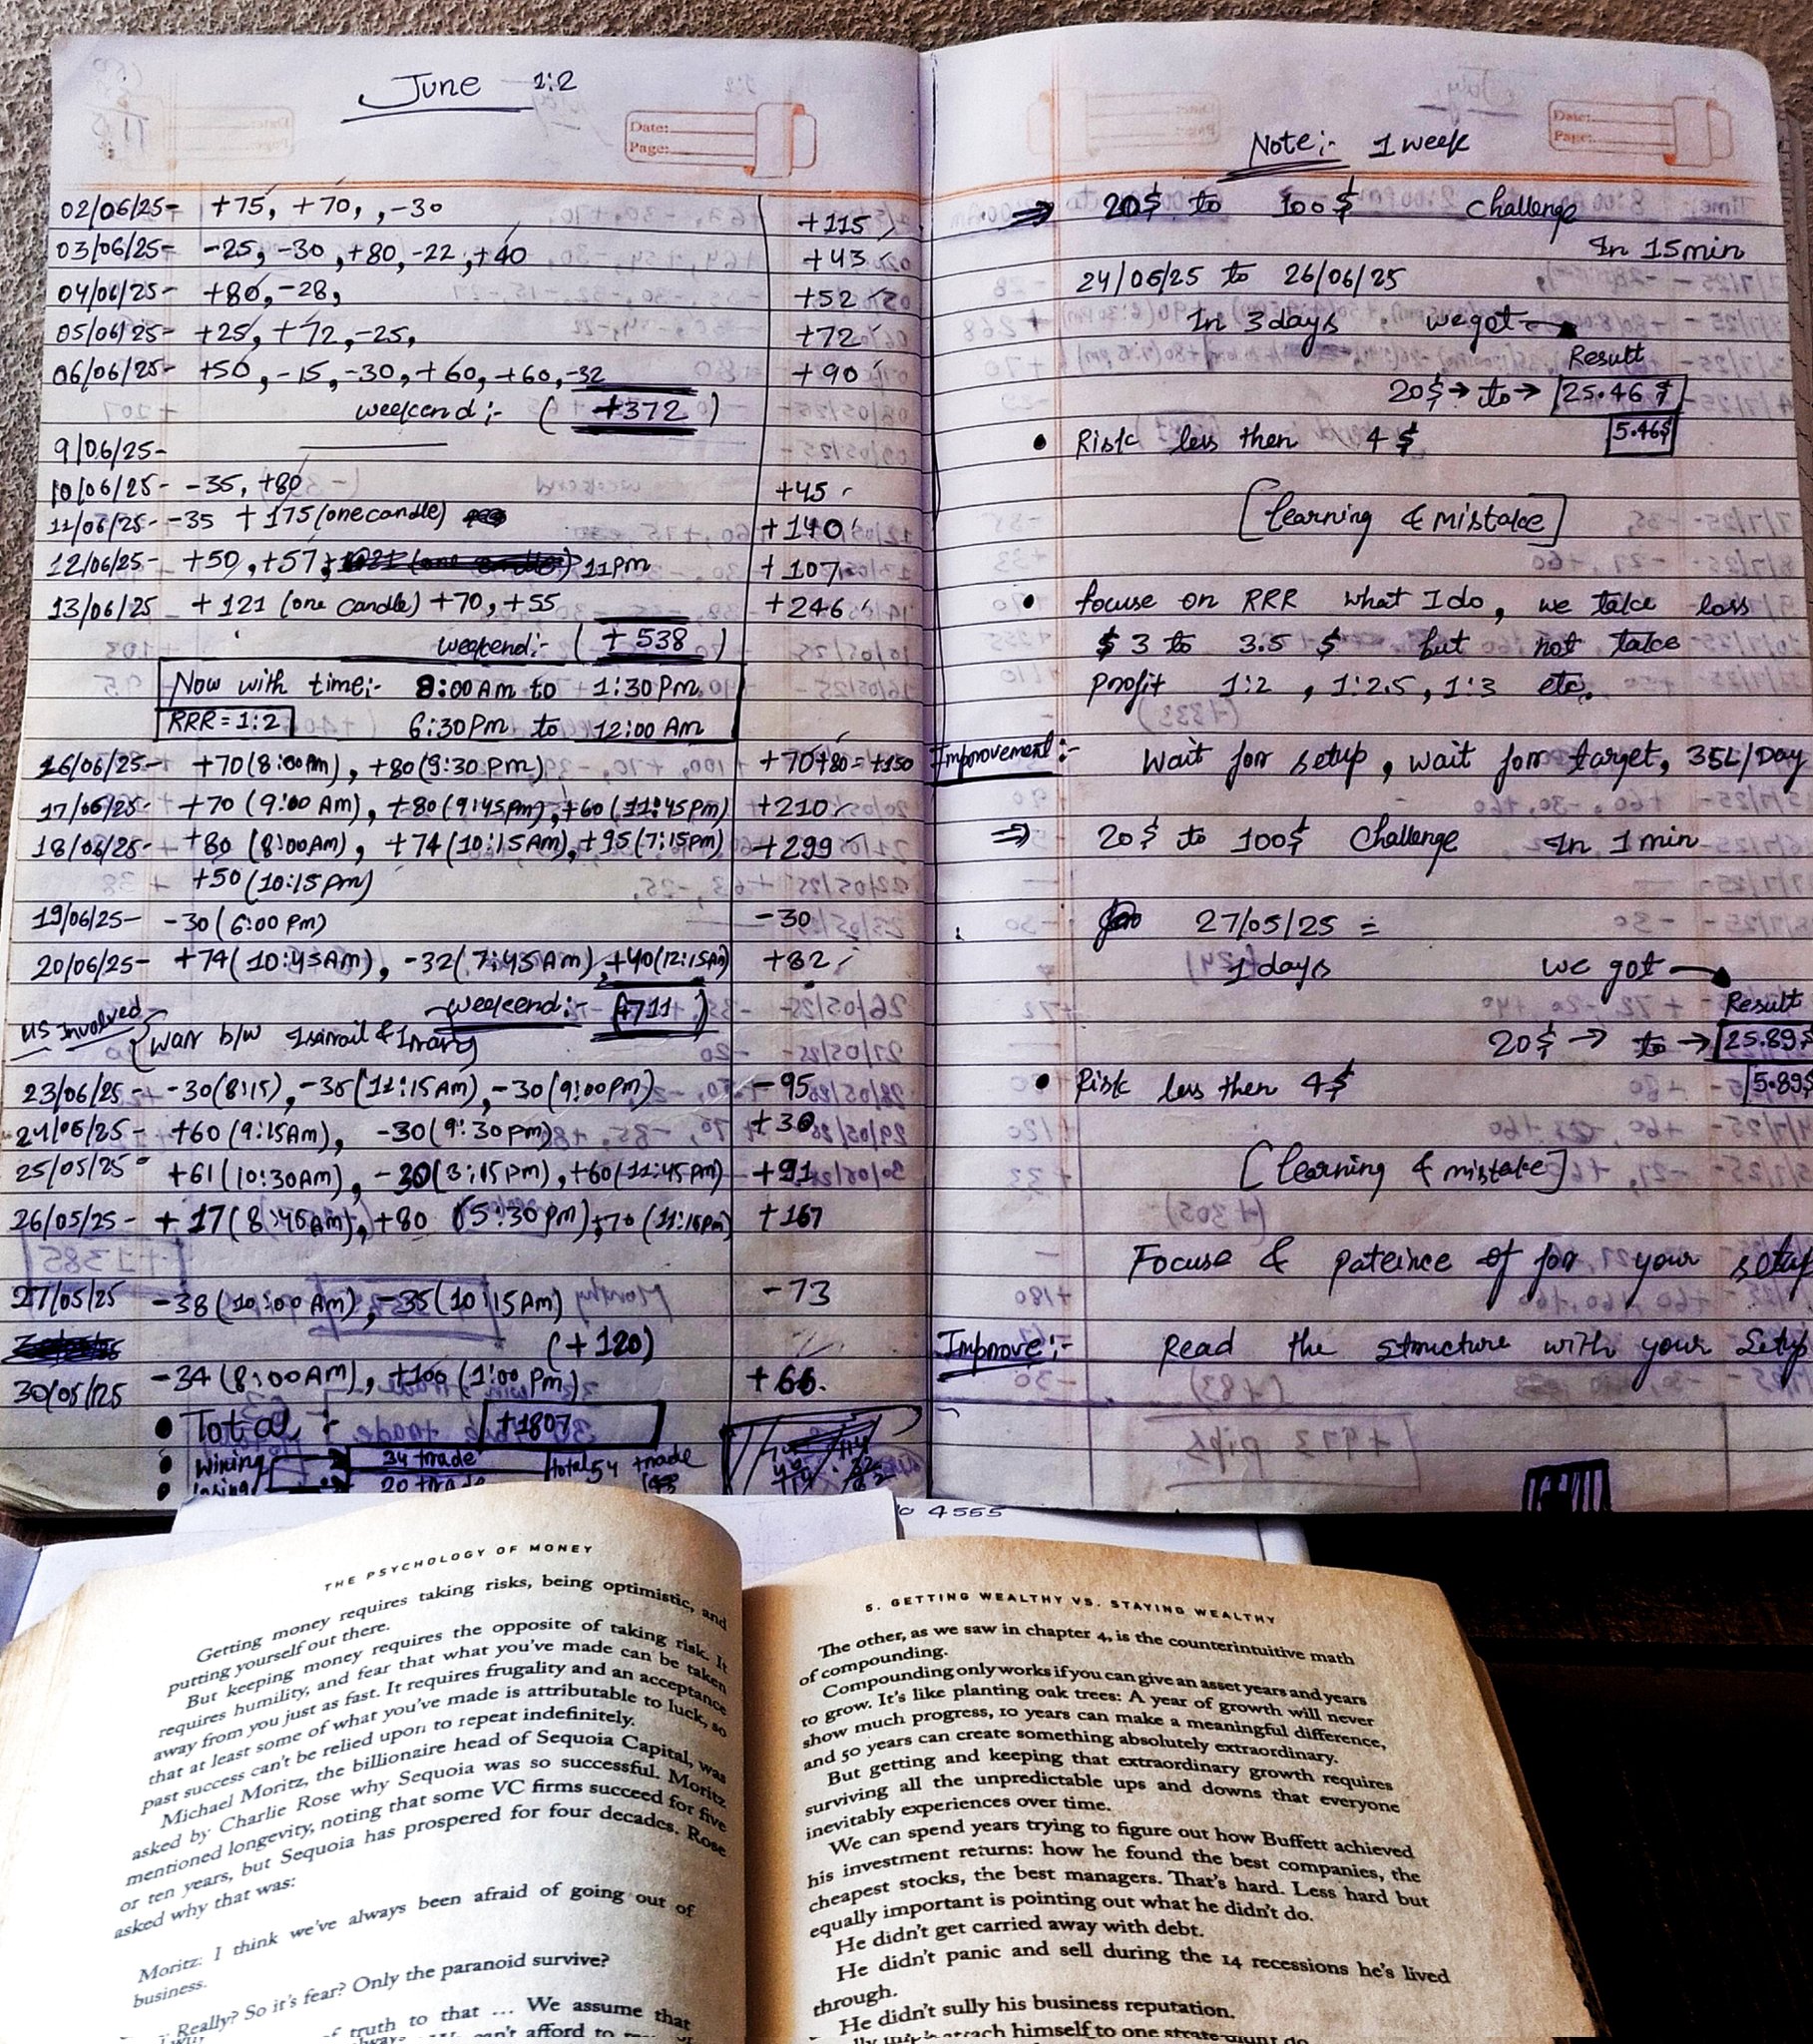 June 1:2
Date:
Page:
02/06/25- +75, +70, , -30 +115
03/06/25- -25, -30, +80, -22, +40 +43
04/06/25- +80, -28, +52
05/06/25- +25, +72, -25, +72
06/06/25- +50, -15, -30, +60, +60, -32 +90
weekend :- ( +372 )
9/06/25-
10/06/25- -35, +80 +45
11/06/25- -35 +175 (one candle) +140
12/06/25- +50, +57, 11pm +107
13/06/25 - +121 (one candle) +70, +55 +246
weekend:- ( +538 )
Now with time:- 8:00 Am to 1:30 Pm
RRR = 1:2 6:30 Pm to 12:00 Am
16/06/25- +70 (8:00 Am), +80 (9:30 pm) +70+80 = +150
17/06/25- +70 (9:00 Am), +80 (9:45pm), +60 (11:45pm) +210
18/06/25- +80 (8:00Am), +74 (10:15 Am), +95 (7:15pm) +299
+50 (10:15 pm)
19/06/25- -30 (6:00 Pm) -30
20/06/25- +74 (10:45Am), -32 (7:45 Am), +40 (12:15Am) +82
weekend:- (+711)
US Involved
war b/w
23/06/25- -30 (8:15), -35 (11:15 Am), -30 (9:00pm) -95
24/06/25- +60 (9:15Am), -30 (9:30 pm) +30
25/05/25 +61 (10:30Am), -30 (3:15pm), +60 (11:45pm) +91
26/05/25- +17 (8:45Am), +80 (5:30 pm), +70 (11:15pm) +167
27/05/25 -38 (10:00 Am), -35 (10:15 Am) -73
(+120)
30/05/25 -34 (8:00 AM), +100 (1:00 Pm) +66.
Total :- +1807
Wining 34 trade total 54 trade
20 trade
Date:
Page:
Note:- 1 week
⇒ 20$ to 100$ challenge
In 15min
24/06/25 to 26/06/25
In 3days we got
Result
20$ → to → 25.46$
• Risk less then 4$ 5.46$
[learning & mistake]
• focuse on RRR what I do, we take loss
$3 to 3.5$ but not take
profit 1:2, 1:2.5, 1:3 etc.
Improvement:- Wait for setup, wait for target, 3SL/Day
⇒ 20$ to 100$ Challenge In 1 min
27/05/25 =
1 days we got
Result
20$ → to → 25.89$
• Risk less then 4$ 5.89$
[learning & mistake]
Focuse & pateince of for your setup
Improve:- Read the structure with your Setup
4555
THE PSYCHOLOGY OF MONEY
Getting money requires taking risks, being optimistic, and
putting yourself out there.
But keeping money requires the opposite of taking risk. It
requires humility, and fear that what you've made can be taken
away from you just as fast. It requires frugality and an acceptance
that at least some of what you've made is attributable to luck, so
past success can't be relied upon to repeat indefinitely.
Michael Moritz, the billionaire head of Sequoia Capital, was
asked by Charlie Rose why Sequoia was so successful. Moritz
mentioned longevity, noting that some VC firms succeed for five
or ten years, but Sequoia has prospered for four decades. Rose
asked why that was:
Moritz: I think we've always been afraid of going out of
business.
Really? So it's fear? Only the paranoid survive?
truth to that ... We assume that
can't afford to
5. GETTING WEALTHY VS. STAYING WEALTHY
The other, as we saw in chapter 4, is the counterintuitive math
of compounding.
Compounding only works if you can give an asset years and years
to grow. It's like planting oak trees: A year of growth will never
show much progress, 10 years can make a meaningful difference,
and 50 years can create something absolutely extraordinary.
But getting and keeping that extraordinary growth requires
surviving all the unpredictable ups and downs that everyone
inevitably experiences over time.
We can spend years trying to figure out how Buffett achieved
his investment returns: how he found the best companies, the
cheapest stocks, the best managers. That's hard. Less hard but
equally important is pointing out what he didn't do.
He didn't get carried away with debt.
He didn't panic and sell during the 14 recessions he's lived
through.
He didn't sully his business reputation.
attach himself to one